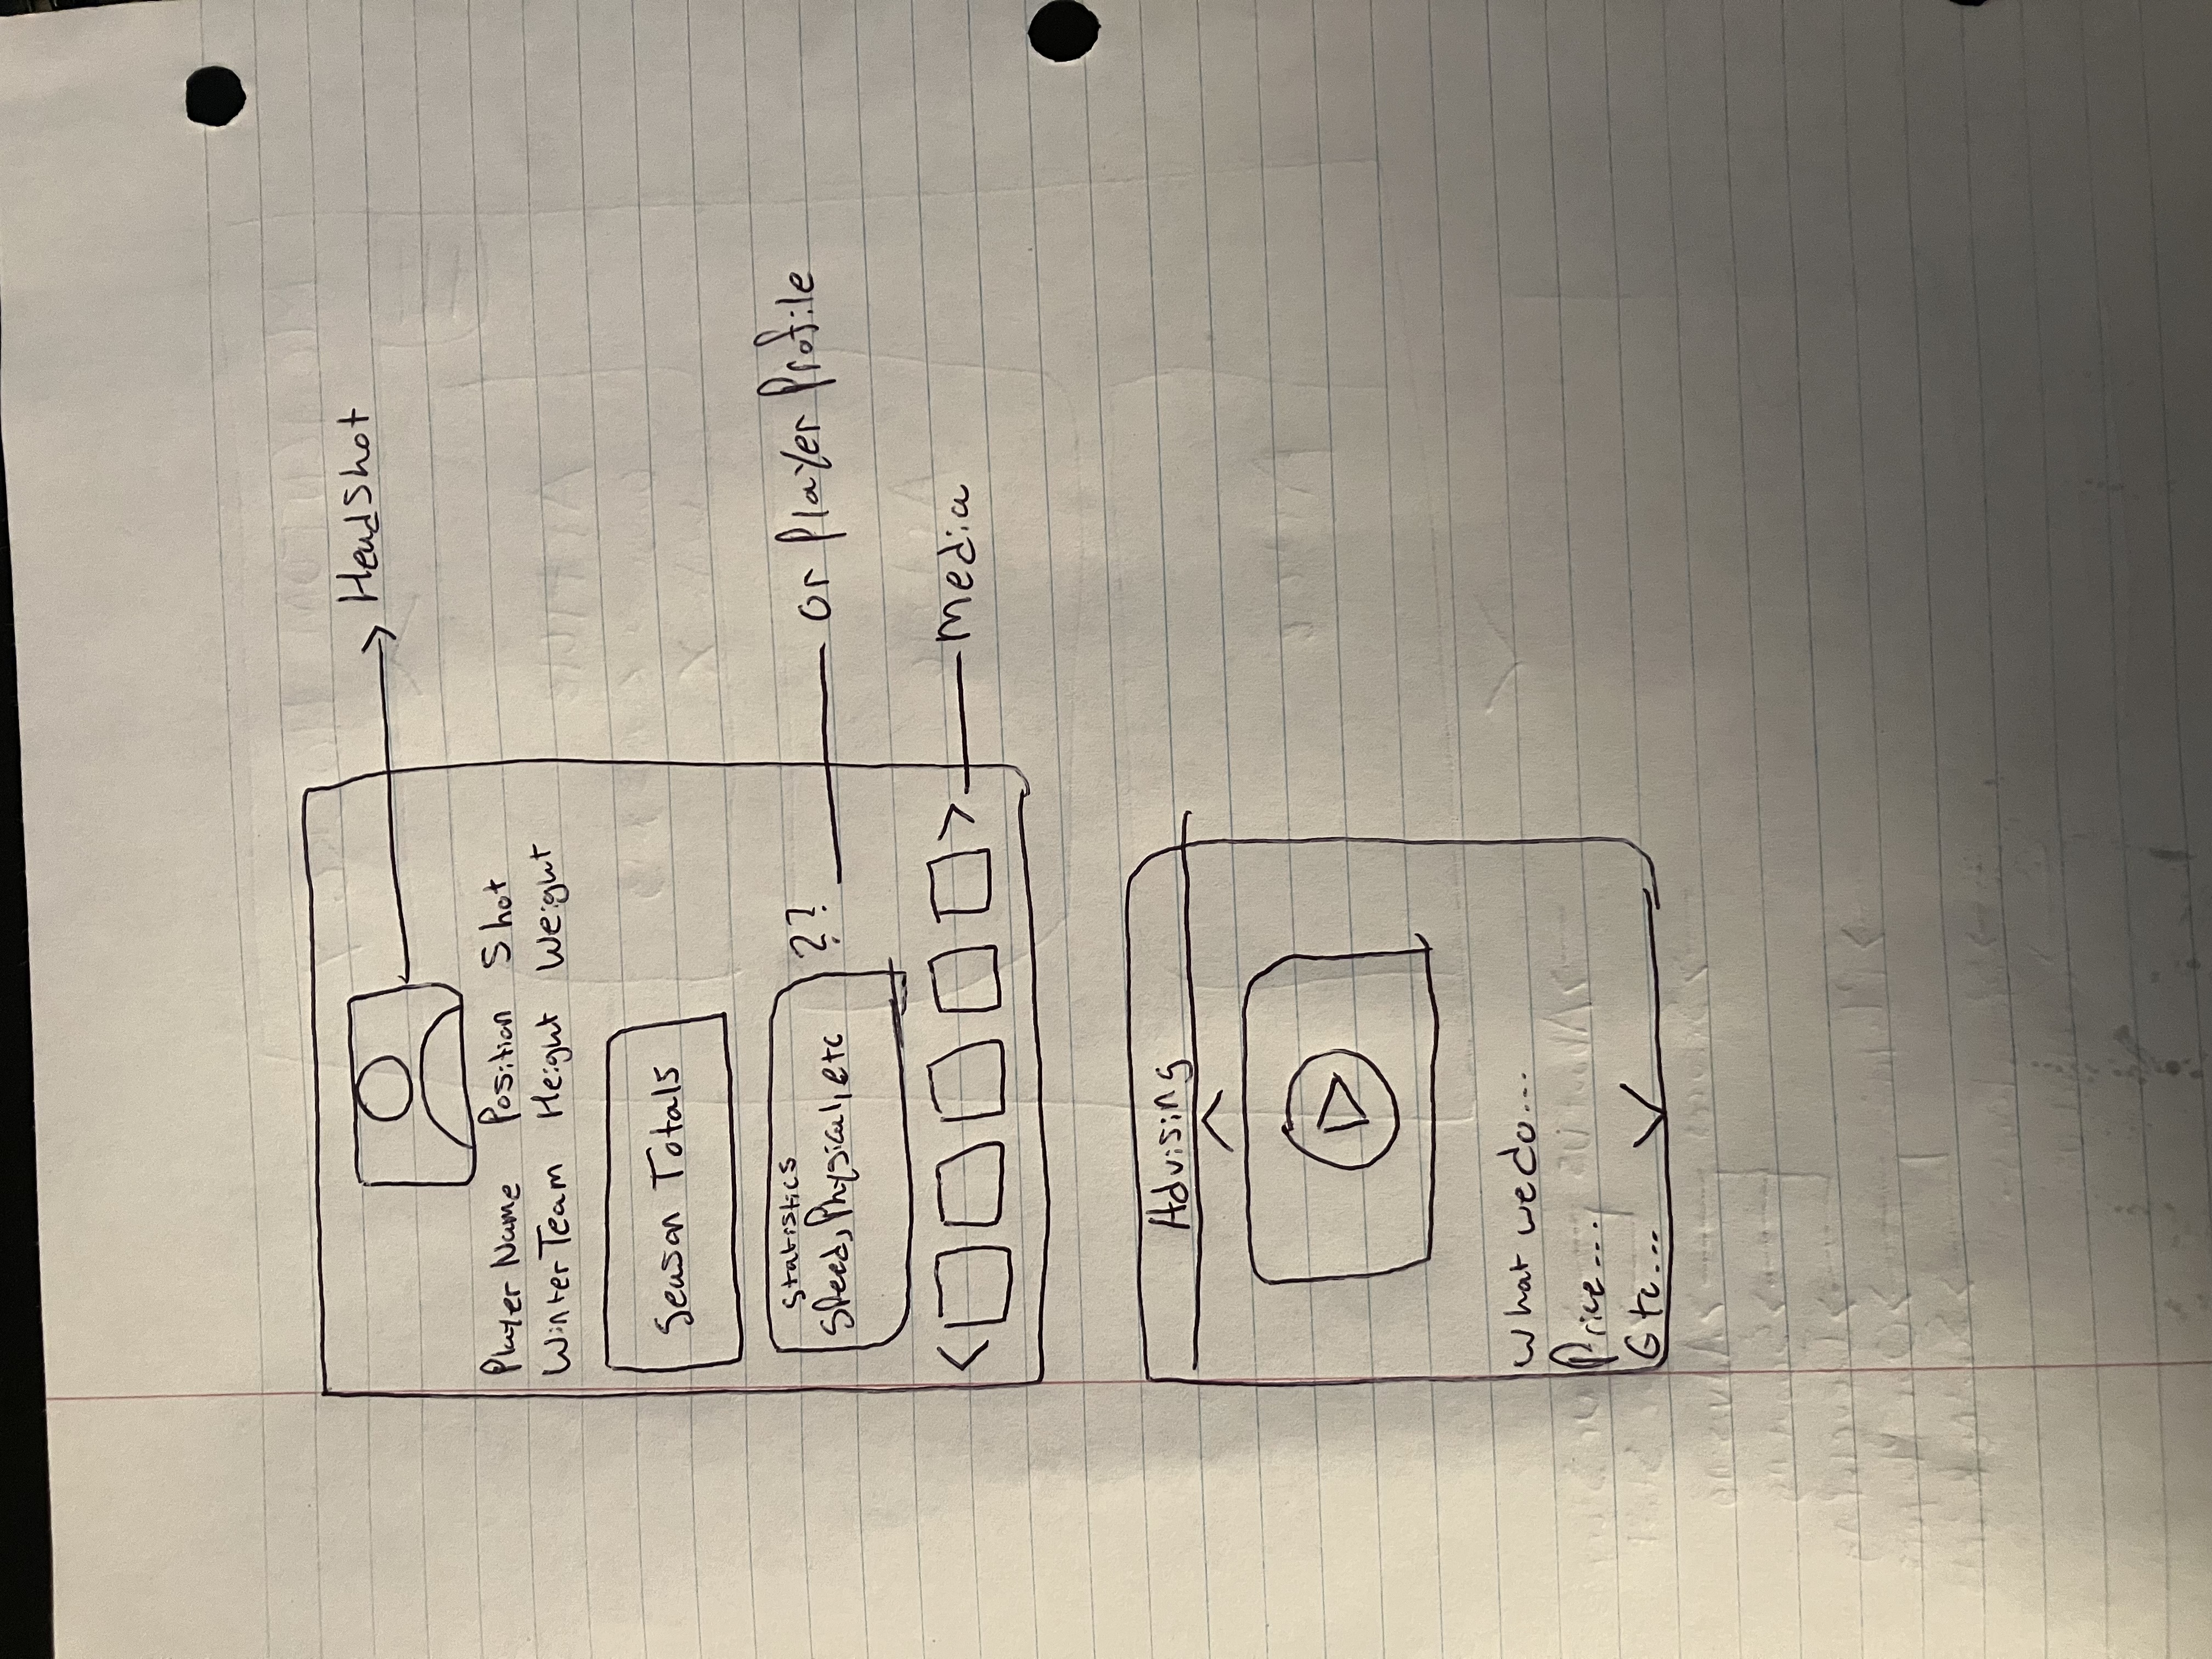 HeadShot
Player Name Position Shot
Winter Team Height Weight
Season Totals
Statistics
Speed, Physical, etc
?? or Player Profile
Media
Advising
What we do...
Price...
Etc...